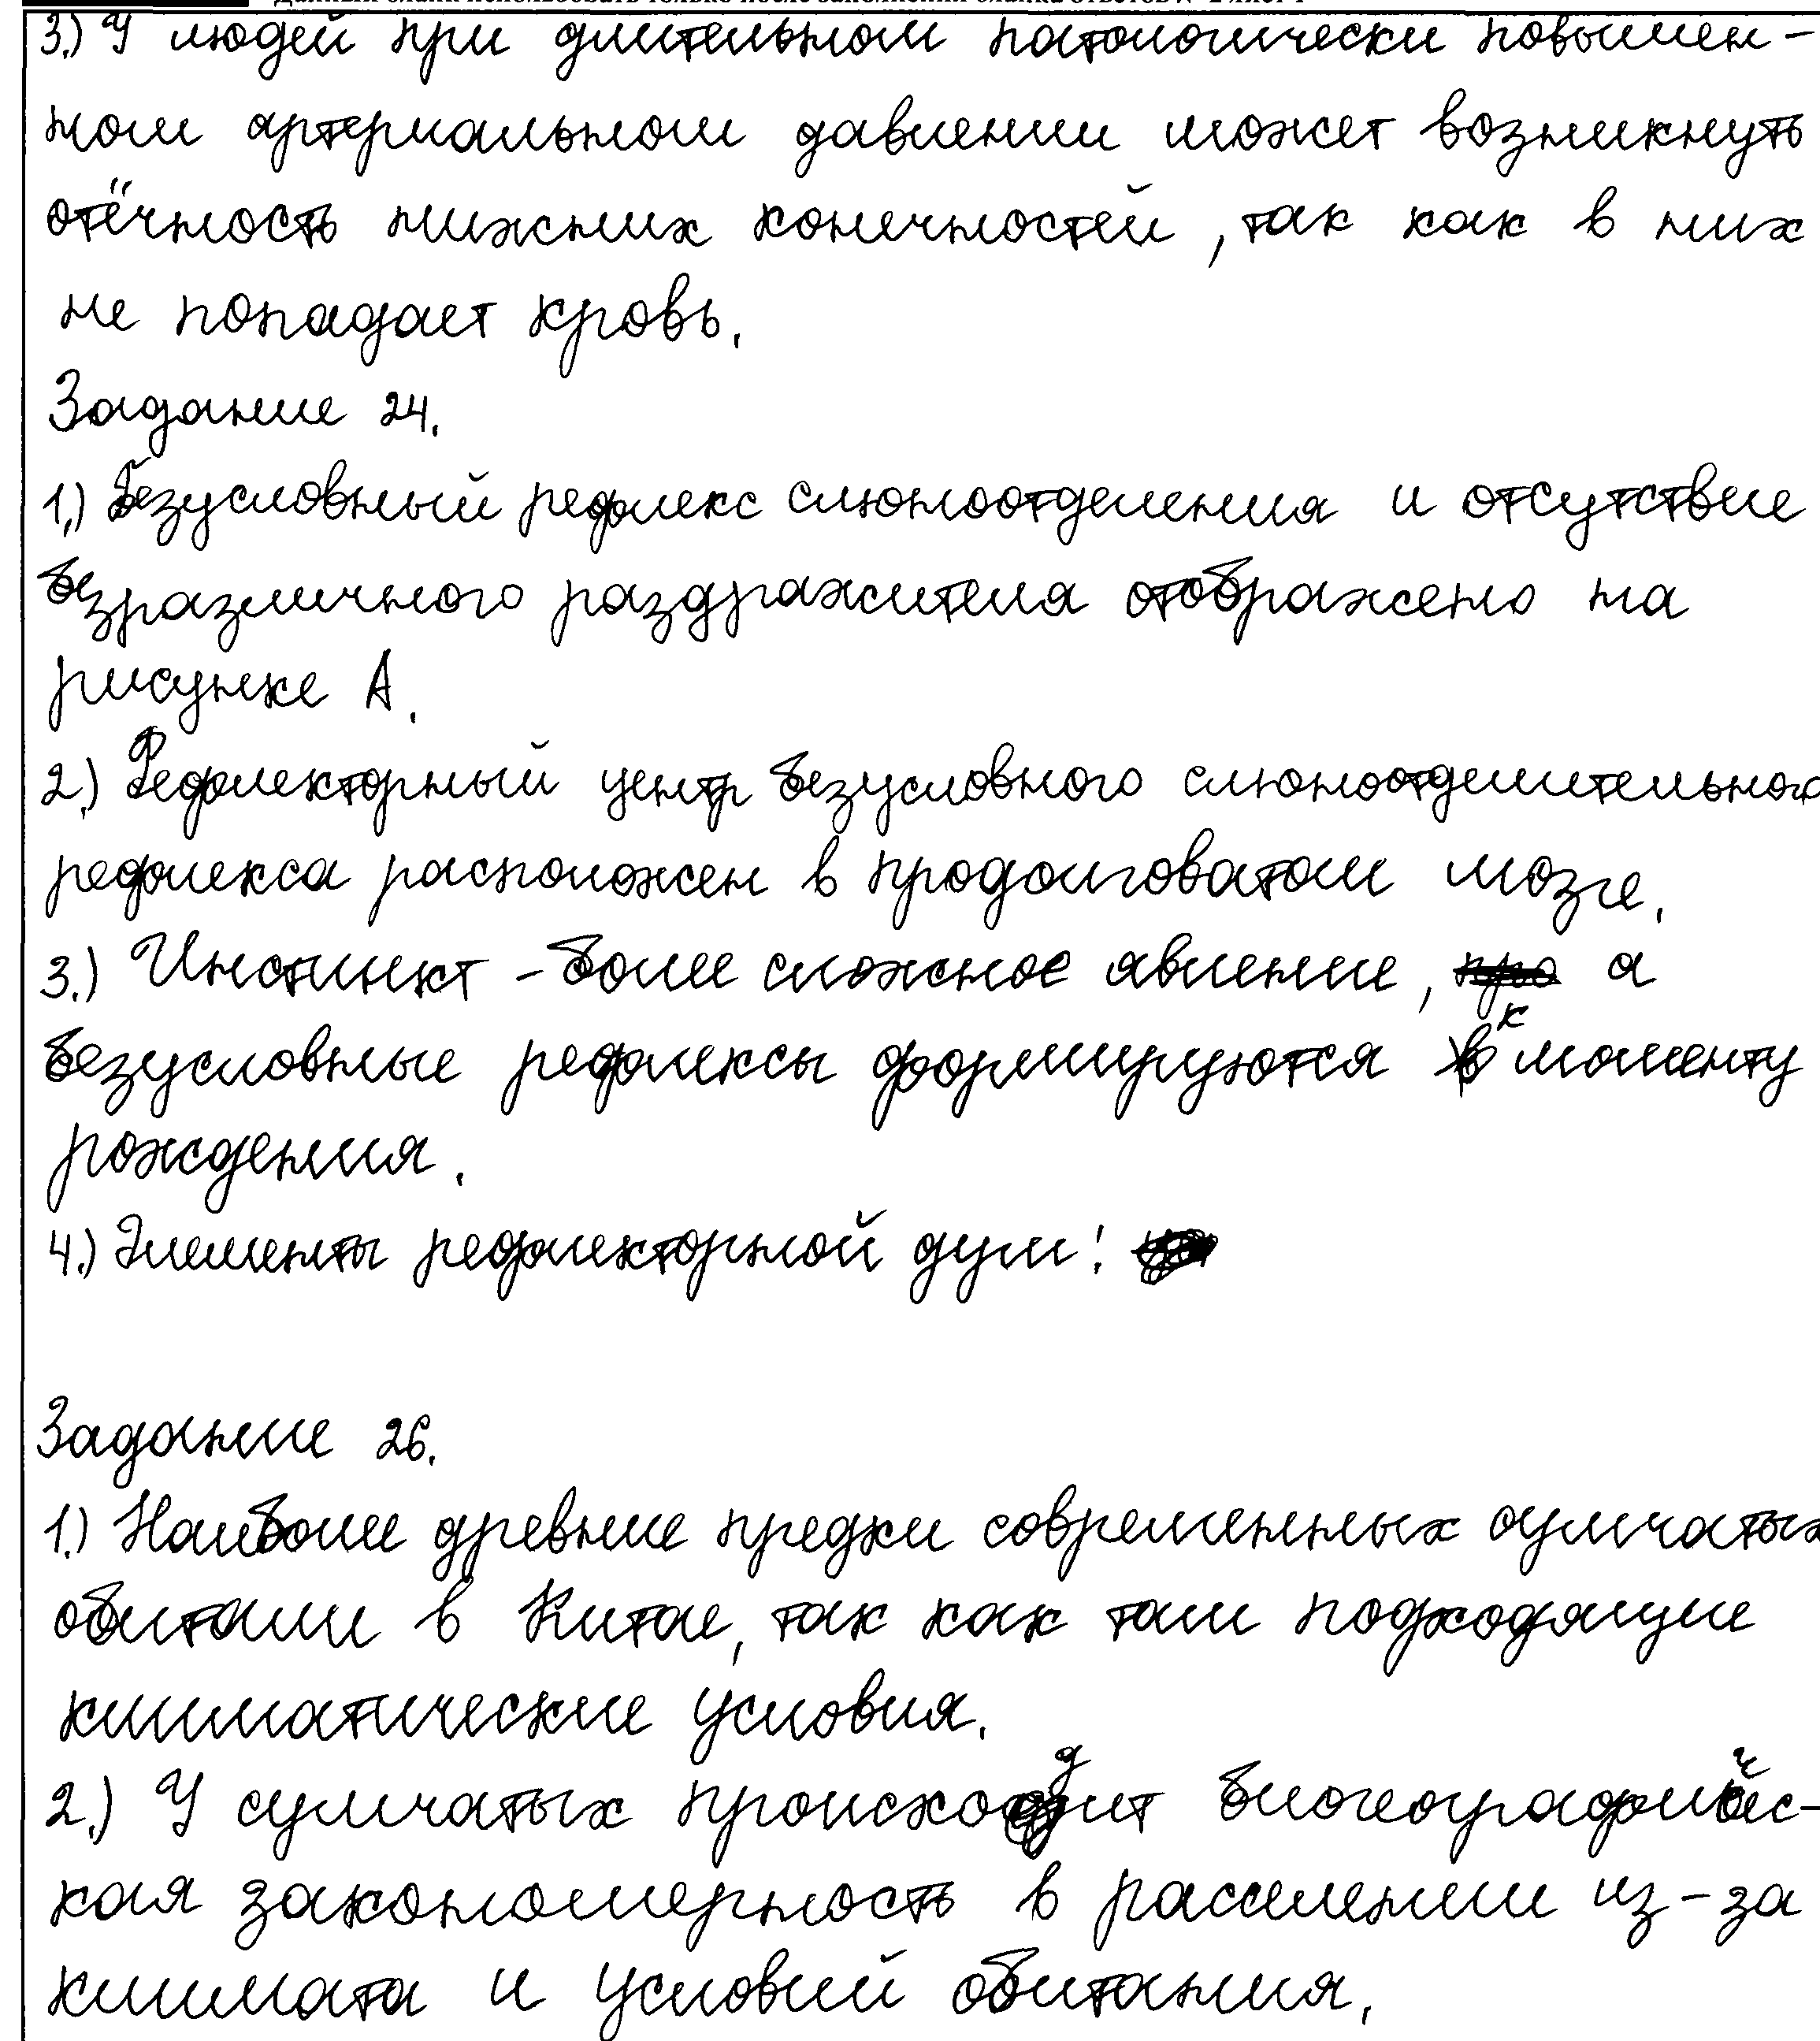 3.) У людей при длительном патологически повышен-
ном артериальном давлении может возникнуть
отёчность нижних конечностей, так как в них
не попадает кровь.
Задание 24.
1.) Безусловный рефлекс слюноотделения и отсутствие
безразличного раздражителя отображено на
рисунке А.
2.) Рефлекторный центр безусловного слюноотделительного
рефлекса расположен в продолговатом мозге.
3.) Инстинкт - более сложное явление, а
безусловные рефлексы формируются к моменту
рождения.
4.) Элементы рефлекторной дуги:
Задание 26.
1.) Наиболее древние предки современных сумчатых
обитали в Китае, так как там подходящие
климатические условия.
2.) У сумчатых происходит биогеографичес-
кая закономерность в расселении из-за
климата и условий обитания.